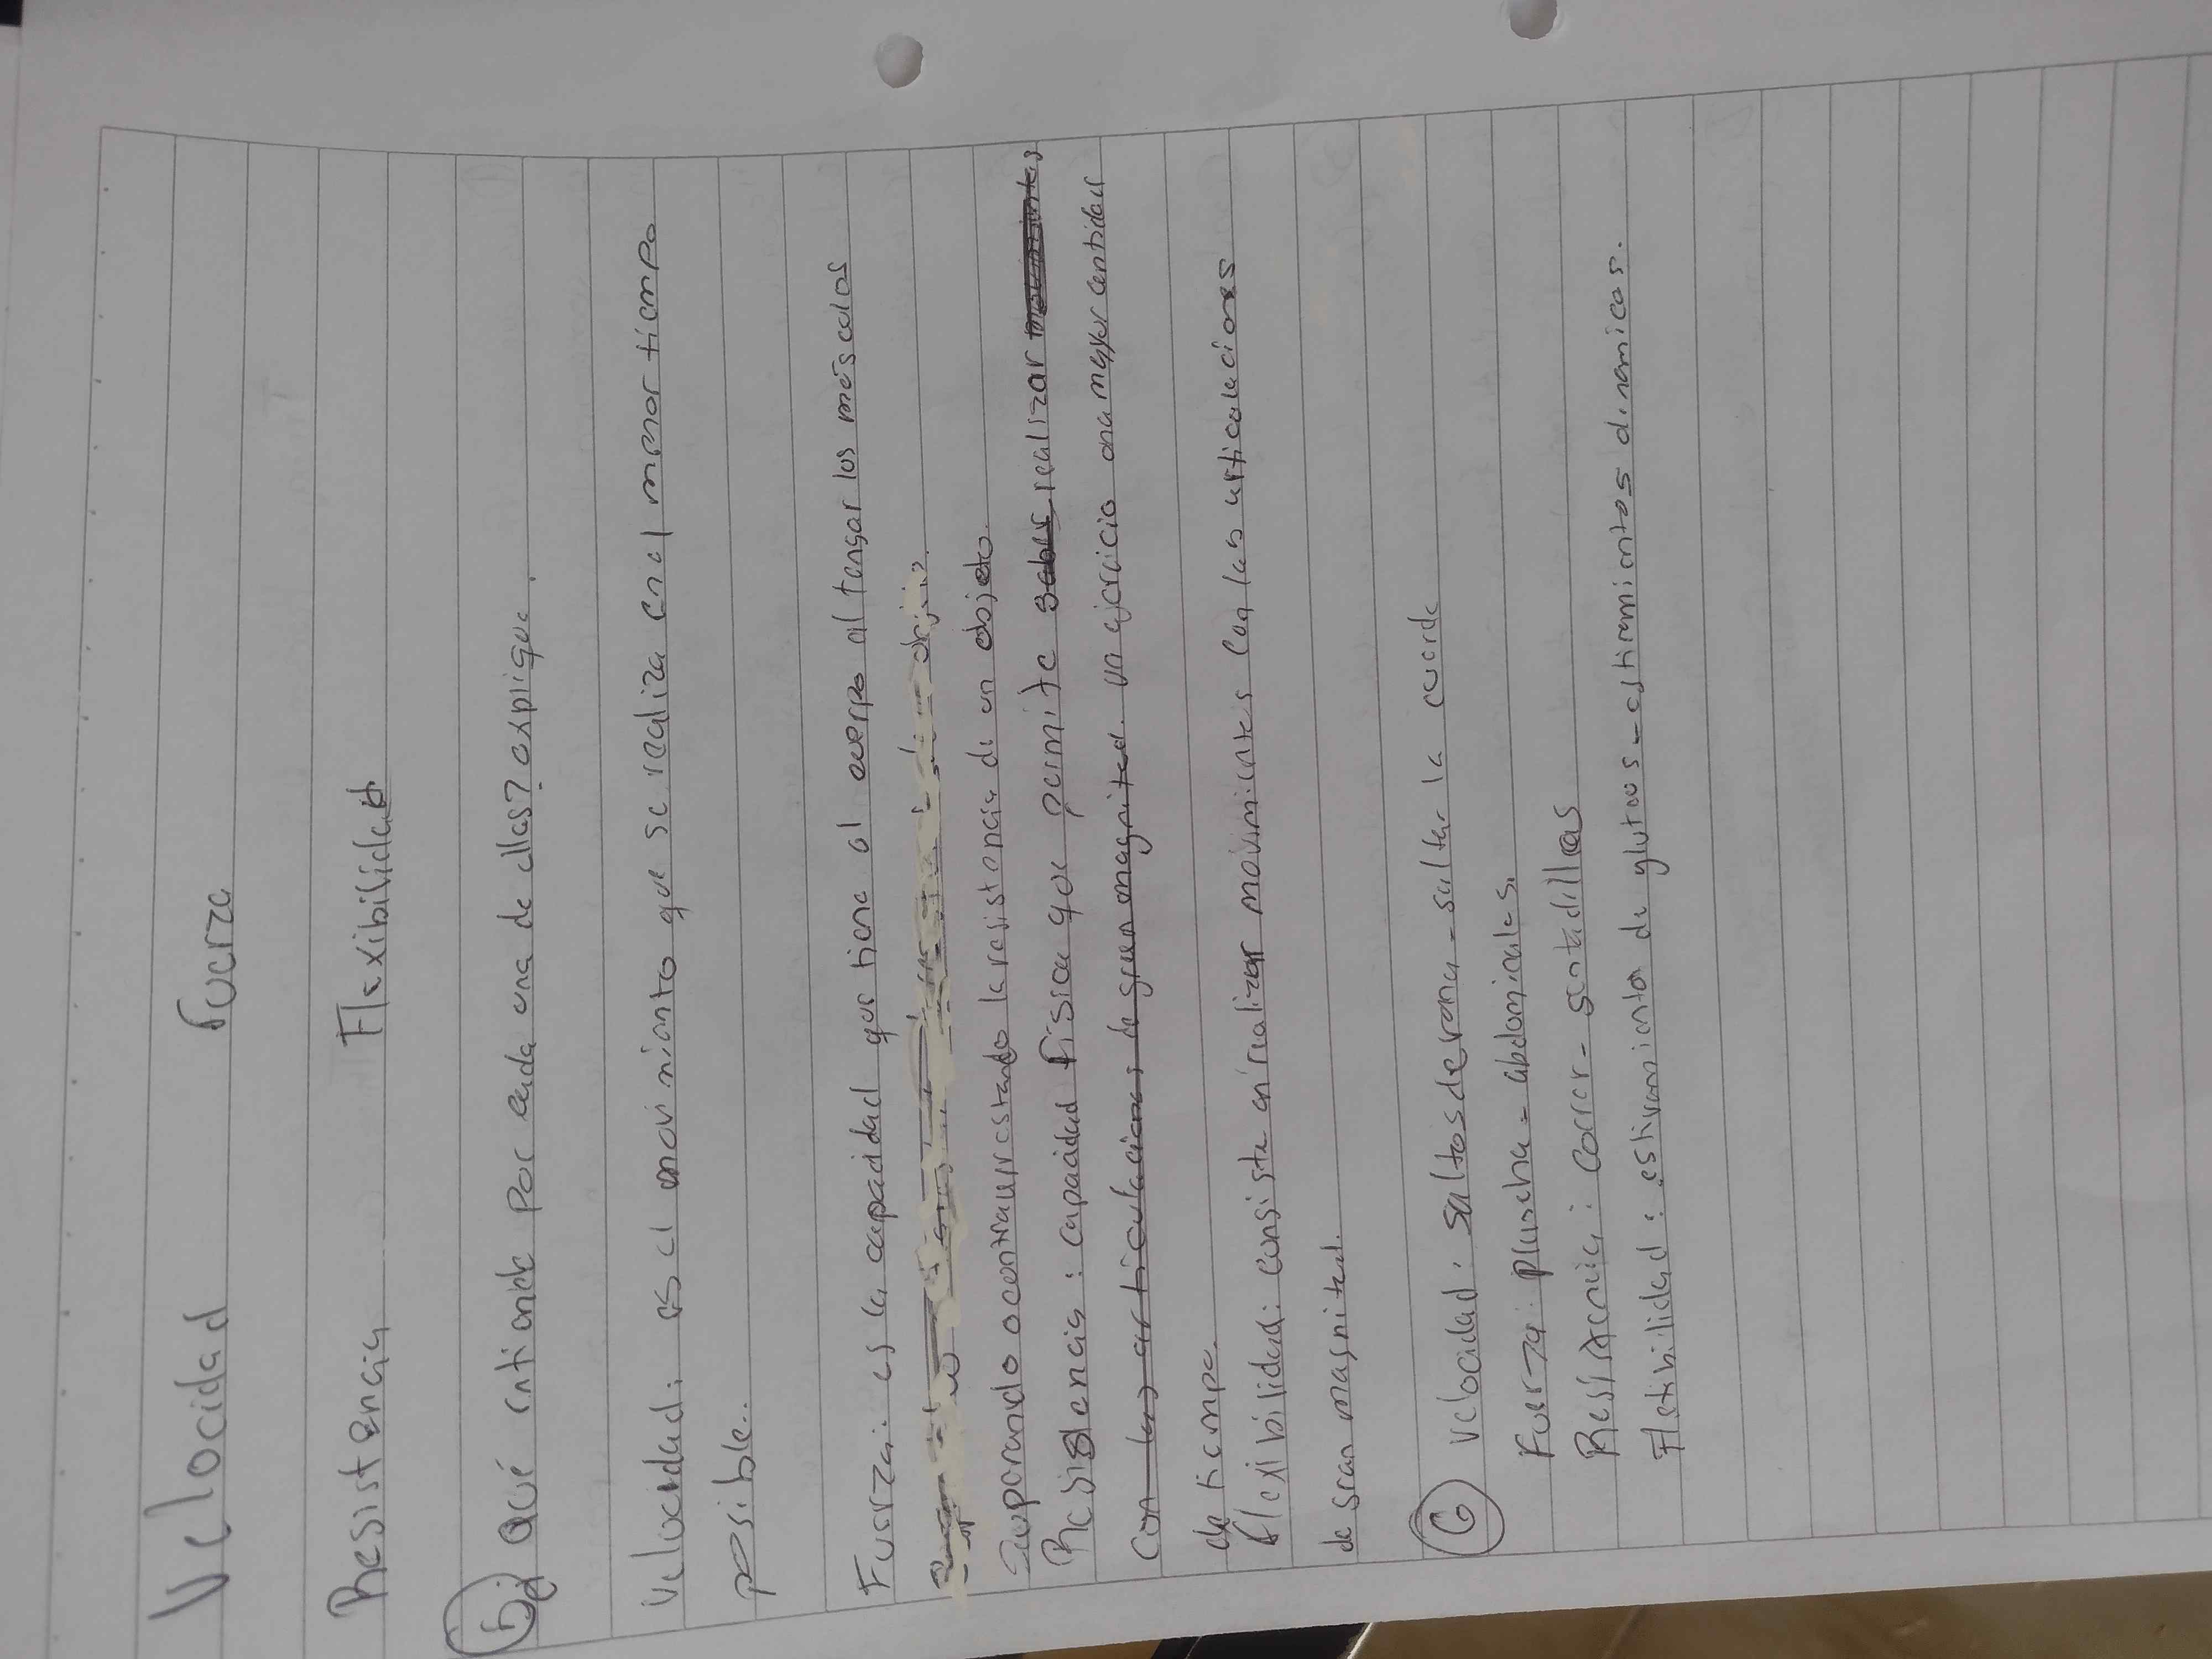 Velocidad Fuerza
Resistencia Flexibilidad
b) Qué entiende por cada una de ellas? explique.
Velocidad: es el movimiento que se realiza en el menor tiempo
posible.
Fuerza: es la capacidad que tiene el cuerpo al tensar los músculos
Superando o contrarrestando la resistencia de un objeto.
Resistencia: capacidad física que permite saber realizar movimientos
con las articulaciones de gran magnitud. un ejercicio una mayor cantidad
de tiempo.
flexibilidad: consiste en realizar movimientos con las articulaciones
de gran magnitud.
C) velocidad: saltos de rana - saltar la cuerda
Fuerza: plancha - abdominales.
Resistencia: correr - sentadillas
Flexibilidad: estiramiento de gluteos - estiramientos dinamicos.